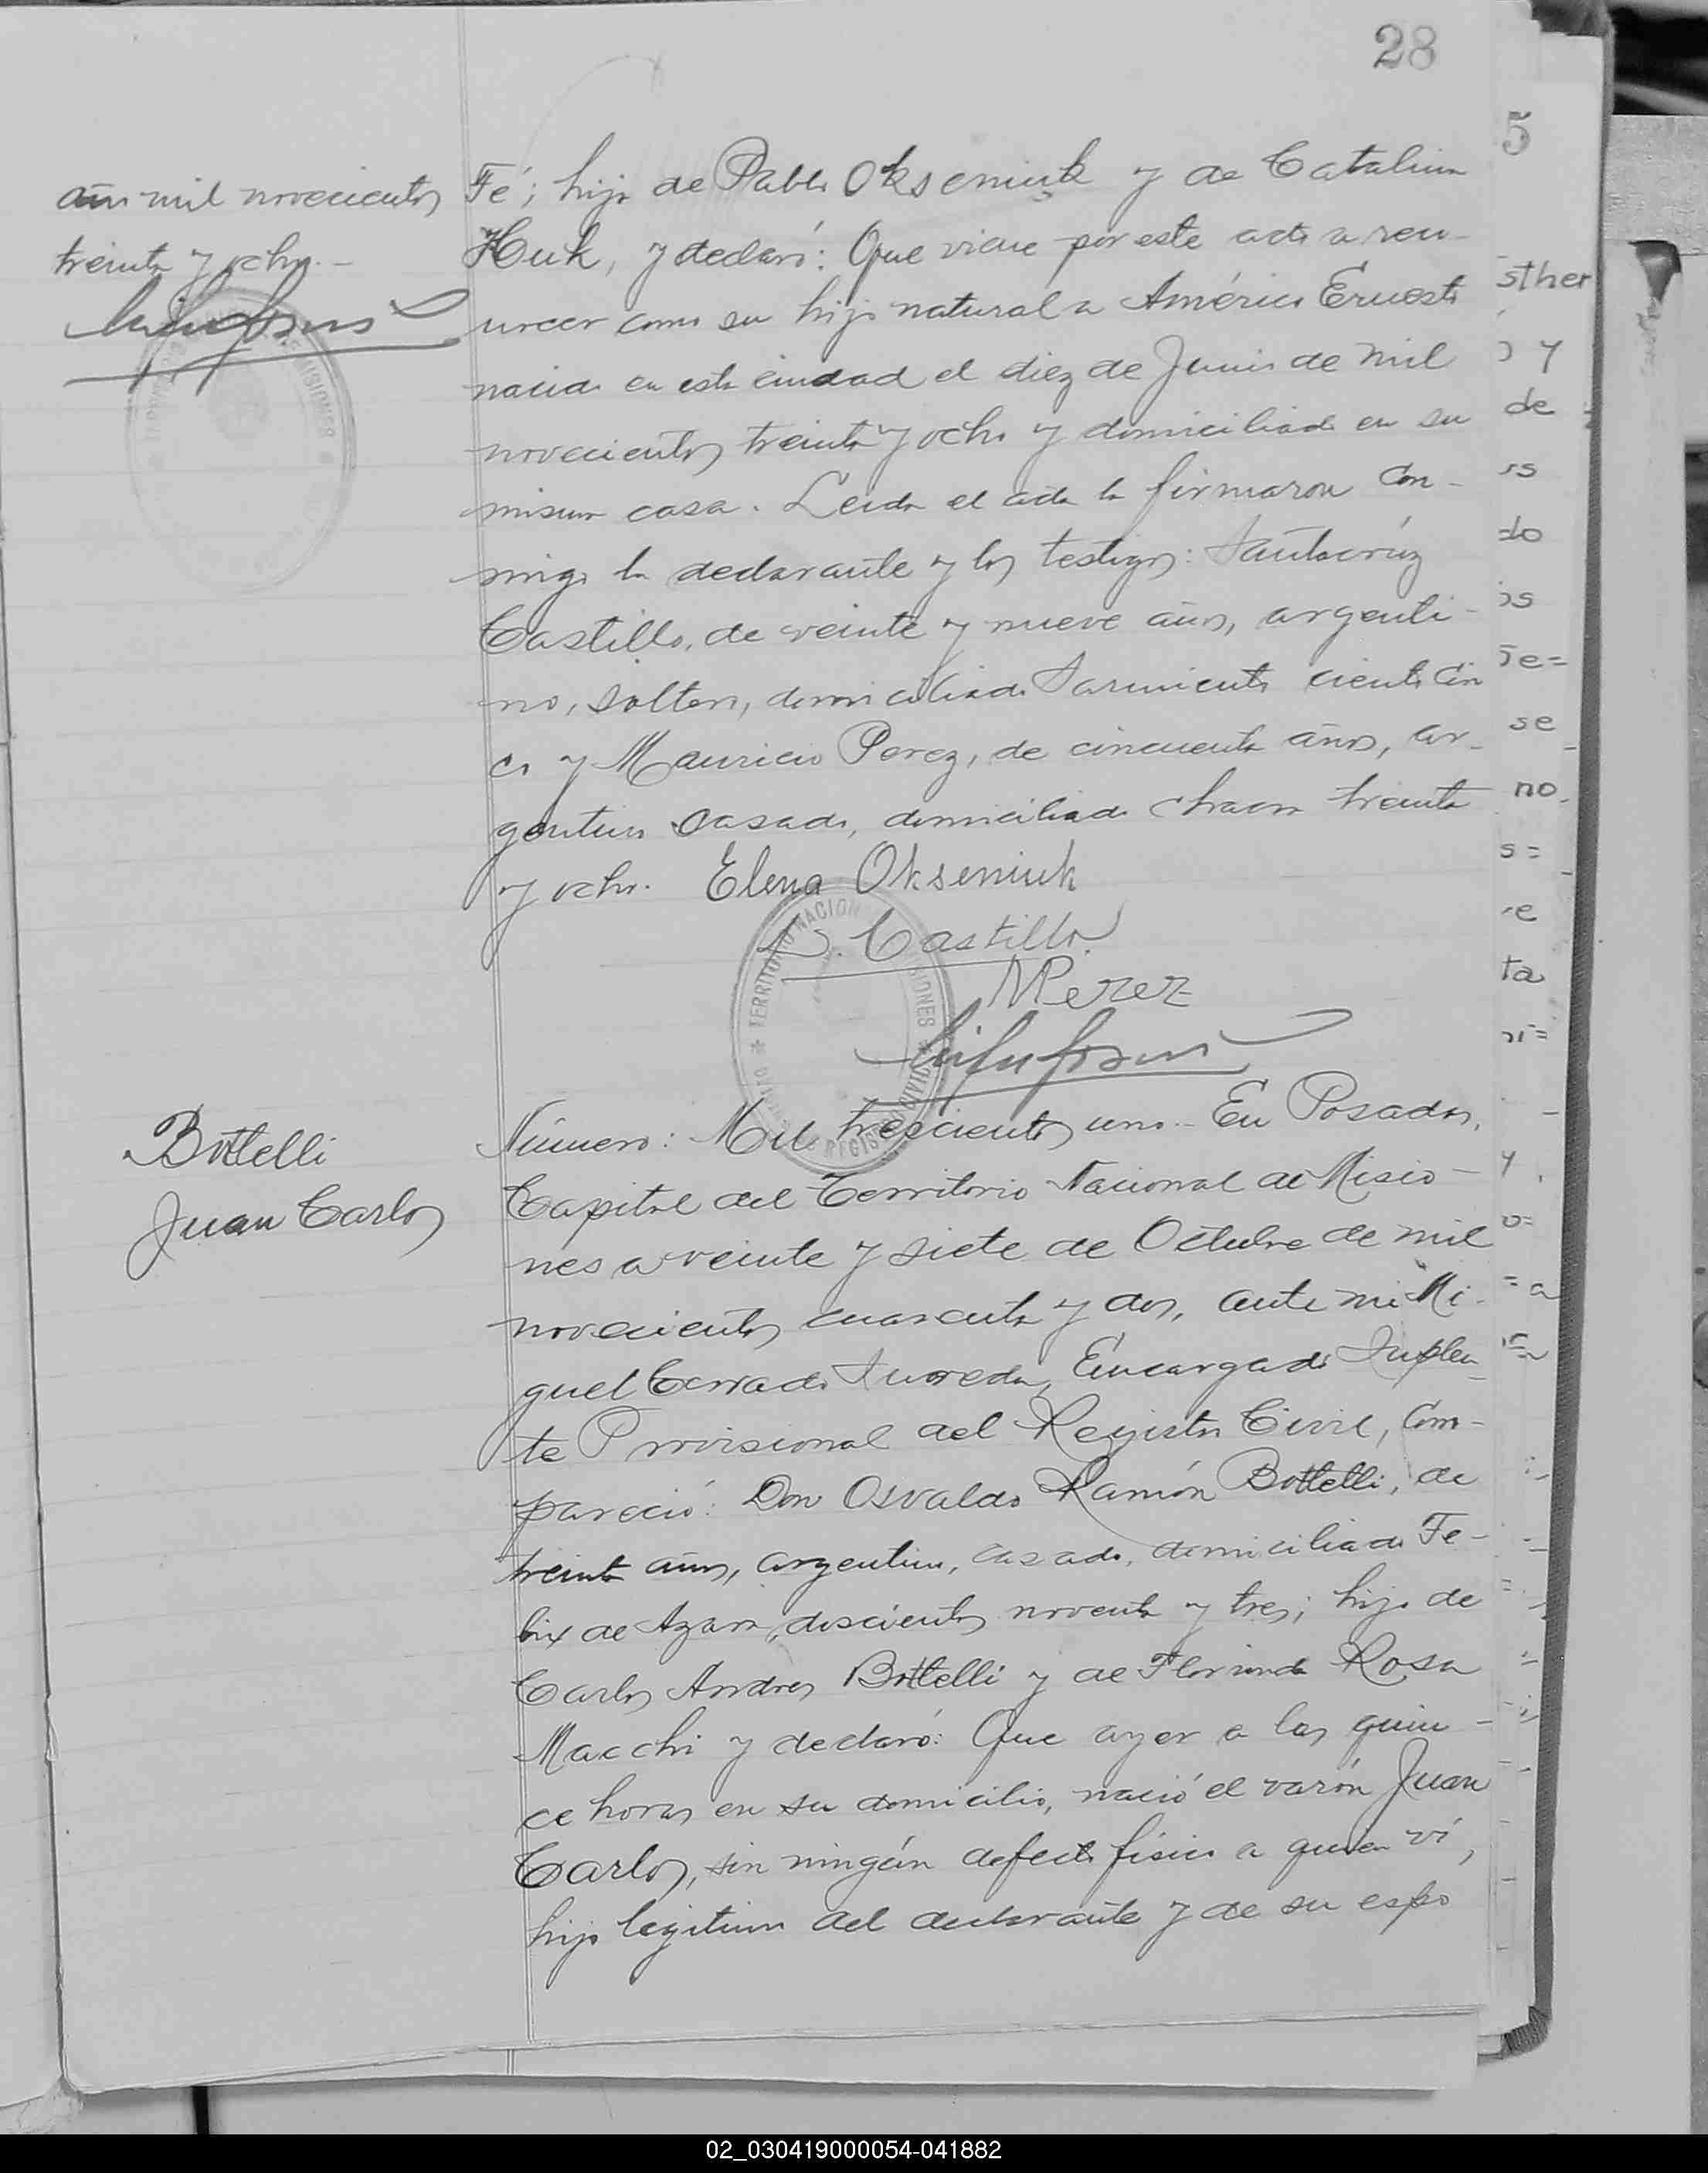 28
año mil novecientos
treinta y ocho.-
Fé; hija de Pablo Okseniuk y de Catalina
Huk, y declaró: Que viene por este acto a reco-
nocer como su hijo natural a Américo Ernesto
nacido en esta ciudad el diez de Junio de mil
novecientos treinta y ocho y domiciliado en su
misma casa. Leida el acta la firmaron con-
migo la declarante y los testigos: Santacrúz
Castillo, de veinte y nueve años, argenti-
no, soltero, domiciliado Sarmiento ciento cin
co y Mauricio Perez, de cincuenta años, ar-
gentino casado, domiciliado Chaco treinta
y ocho. Elena Okseniuk
S. Castillo
MPerez
TERRITORIO NACION MISIONES
Bottelli
Juan Carlos
Número: Mil trescientos uno.- En Posadas,
Capital del Territorio Nacional de Misio-
nes a veinte y siete de Octubre de mil
novecientos cuarenta y dos, ante mi Mi-
guel Conrado Suoreda, Encargado Suplen-
te Provisional del Registro Civil, Com-
pareció: Don Osvaldo Ramón Bottelli, de
treinta años, argentino, casado, domiciliado Fe-
lix de Azara, doscientos noventa y tres; hijo de
Carlos Andres Bottelli y de Florinda Rosa
Macchi y declaró: Que ayer a las quin-
ce horas en su domicilio, nació el varón Juan
Carlos, sin ningún defecto físico a quien ví,
hijo legitimo del declarante y de su espo
5
sther
y
de
do
os
se
no
ta
02_030419000054-041882